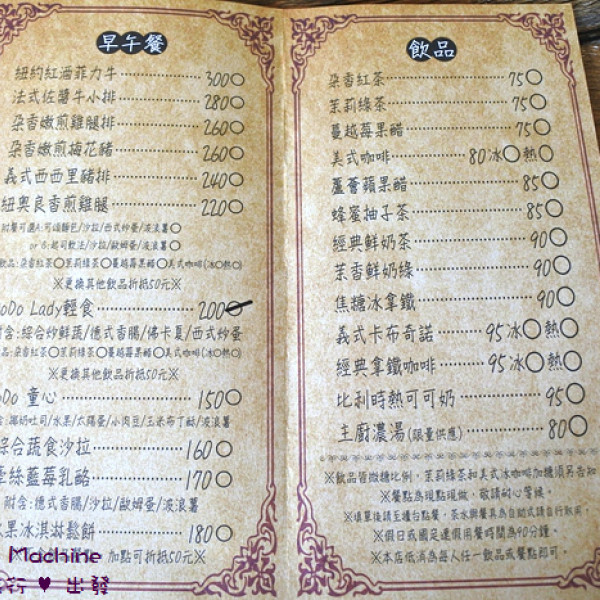 早午餐
紐約紅酒菲力牛 300
法式佐醬牛小排 280
朶香嫩煎雞腿排 260
朶香嫩煎梅花豬 260
義式西西里豬排 240
紐奧良香煎雞腿 220
附餐可選A:可頌麵包/沙拉/西式炒蛋/波浪薯
or B:起司軟法/沙拉/歐姆蛋/波浪薯
飲品:朶香紅茶 茉莉綠茶 蔓越莓果醋 美式咖啡(冰 熱)
※更換其他飲品折抵50元※
oDo Lady輕食 200
附含:綜合炒鮮蔬/德式香腸/佛卡夏/西式炒蛋
品:朶香紅茶 茉莉綠茶 蔓越莓果醋 美式咖啡(冰 熱)
※更換其他飲品折抵50元※
oDo 童心 150
含:椰奶吐司/水果/太陽蛋/小肉豆/玉米布丁酥/波浪薯
綜合蔬食沙拉 160
牽絲藍莓乳酪 170
附含:德式香腸/沙拉/歐姆蛋/波浪薯
水果冰淇淋鬆餅 180
加點可折抵50元※
Machine
♥ 出發
飲品
朶香紅茶 75
茉莉綠茶 75
蔓越莓果醋 75
美式咖啡 80 冰 熱
蘆薈蘋果醋 85
蜂蜜柚子茶 85
經典鮮奶茶 90
茉香鮮奶綠 90
焦糖冰拿鐵 90
義式卡布奇諾 95 冰 熱
經典拿鐵咖啡 95 冰 熱
比利時熱可可奶 95
主廚濃湯(限量供應) 80
※飲品皆微糖比例,茉莉綠茶和美式冰咖啡加糖須另告知
※餐點為現點現做,敬請耐心等候。
※填單後請至櫃台點餐,茶水與餐具為自助式請自行取用。
※假日或國定連假用餐時間為90分鐘。
※本店低消為每人任一飲品或餐點即可。※